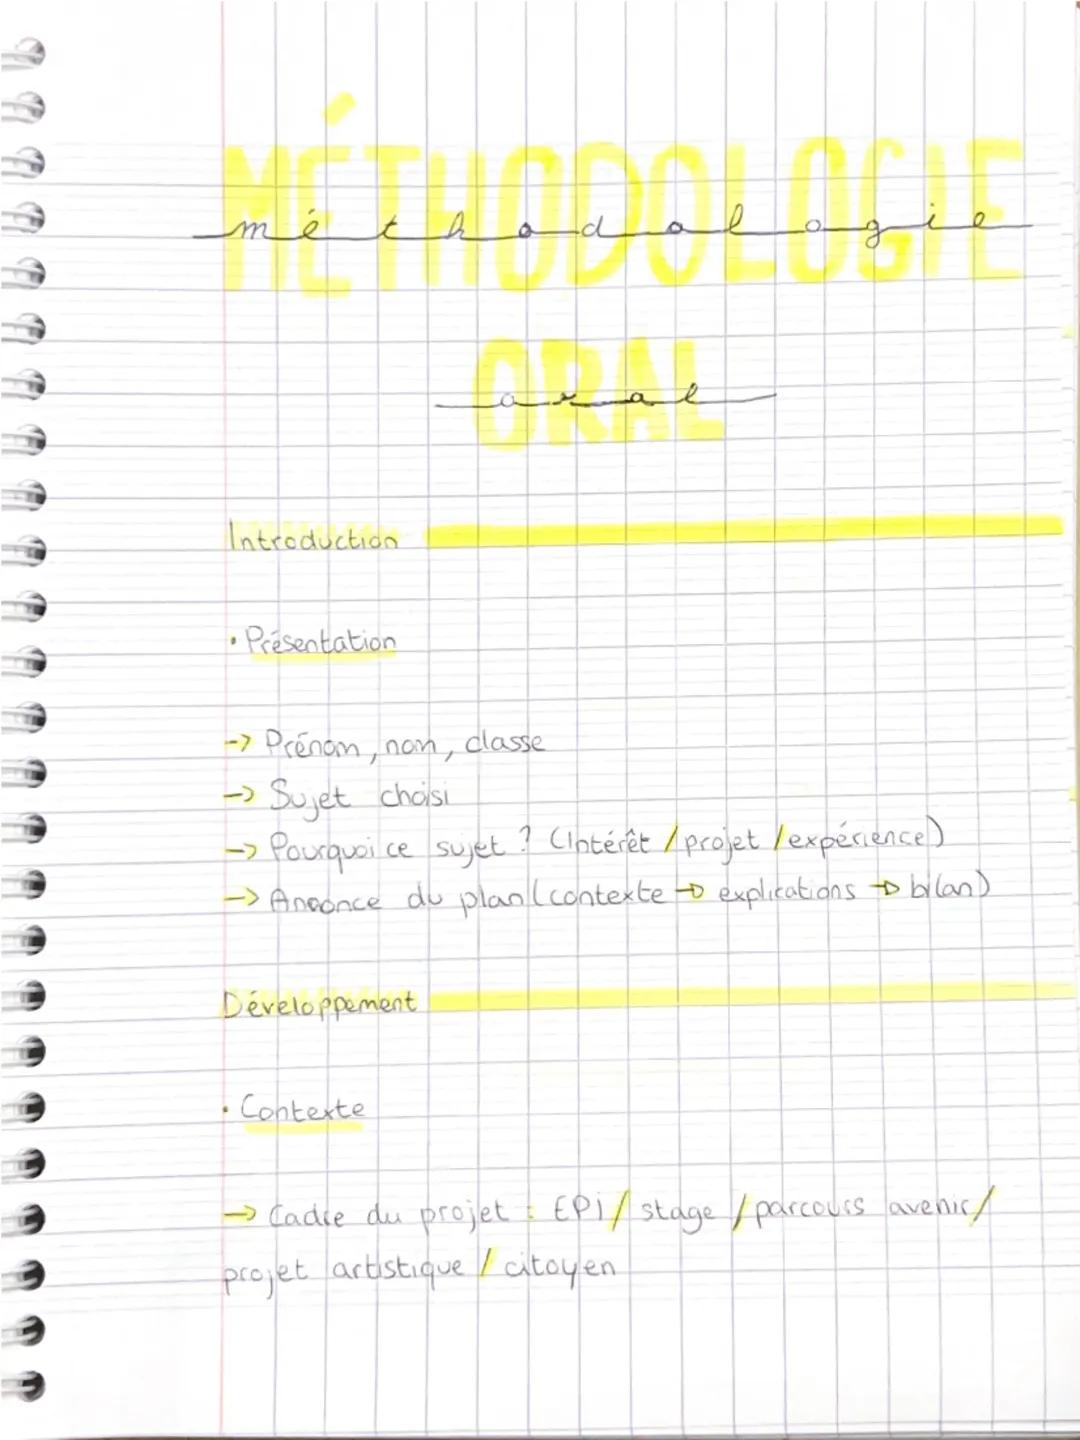 MÉTHODOLOGIE
méthodologie
ORAL
oral
Introduction
• Présentation
-> Prénom, nom, classe
-> Sujet choisi
-> Pourquoi ce sujet ? (Intérêt / projet / expérience)
-> Annonce du plan (contexte -> explications -> bilan)
Développement
• Contexte
-> Cadre du projet : EPI / stage / parcours avenir /
projet artistique / citoyen